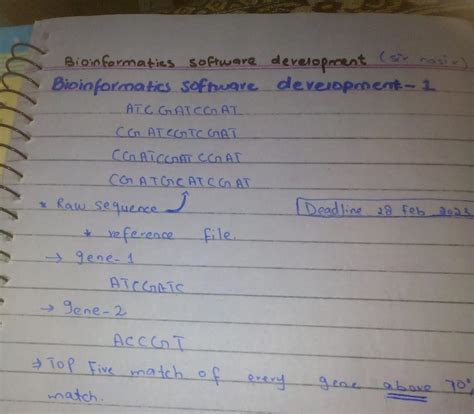 Bioinformatics software development (sir nasir)
Bioinformatics software development-1
ATCGATCGAT
CGATCGTCGAT
CGATCGAT CGAT
CGATGCATCGAT
* Raw sequence
Deadline 28 Feb 2023
* reference file.
→ gene-1
ATCGATC
→ gene-2
ACCGT
→ Top Five match of every gene above 70%
match.